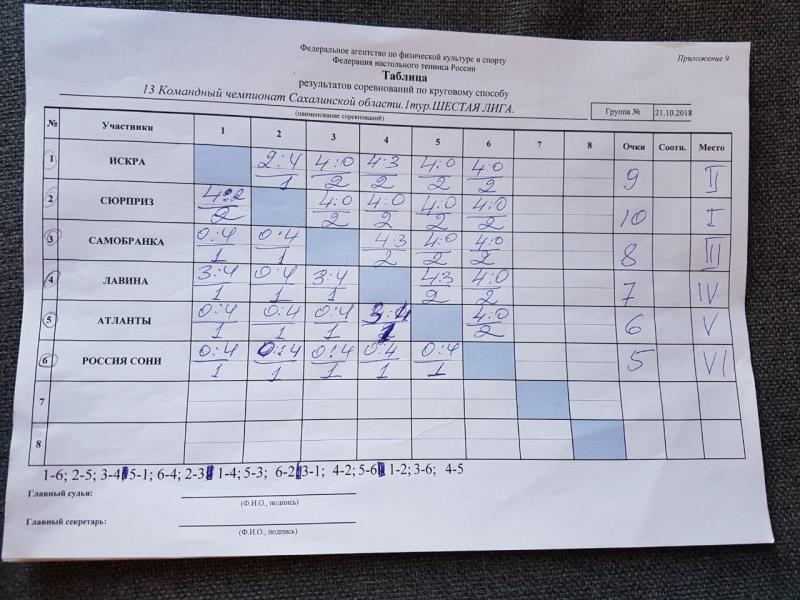 Приложение 9
Федеральное агентство по физической культуре и спорту
Федерация настольного тенниса России
Таблица
результатов соревнований по круговому способу
13 Командный чемпионат Сахалинской области.1тур.ШЕСТАЯ ЛИГА.
(наименование соревнований)
Группа № 21.10.2018
№ Участники 1 2 3 4 5 6 7 8 Очки Соотн. Место
1 ИСКРА 2:4 4:0 4:3 4:0 4:0 9 II
1 2 2 2 2
2 СЮРПРИЗ 4:2 4:0 4:0 4:0 4:0 10 I
2 2 2 2 2
3 САМОБРАНКА 0:4 0:4 4:3 4:0 4:0 8 III
1 1 2 2 2
4 ЛАВИНА 3:4 0:4 3:4 4:3 4:0 7 IV
1 1 1 2 2
5 АТЛАНТЫ 0:4 0:4 0:4 3:4 4:0 6 V
1 1 1 1 2
6 РОССИЯ СОНИ 0:4 0:4 0:4 0:4 0:4 5 VI
1 1 1 1 1
7
8
1-6; 2-5; 3-4 5-1; 6-4; 2-3 1-4; 5-3; 6-2 3-1; 4-2; 5-6 1-2; 3-6; 4-5
Главный судья:
(Ф.И.О., подпись)
Главный секретарь:
(Ф.И.О., подпись)